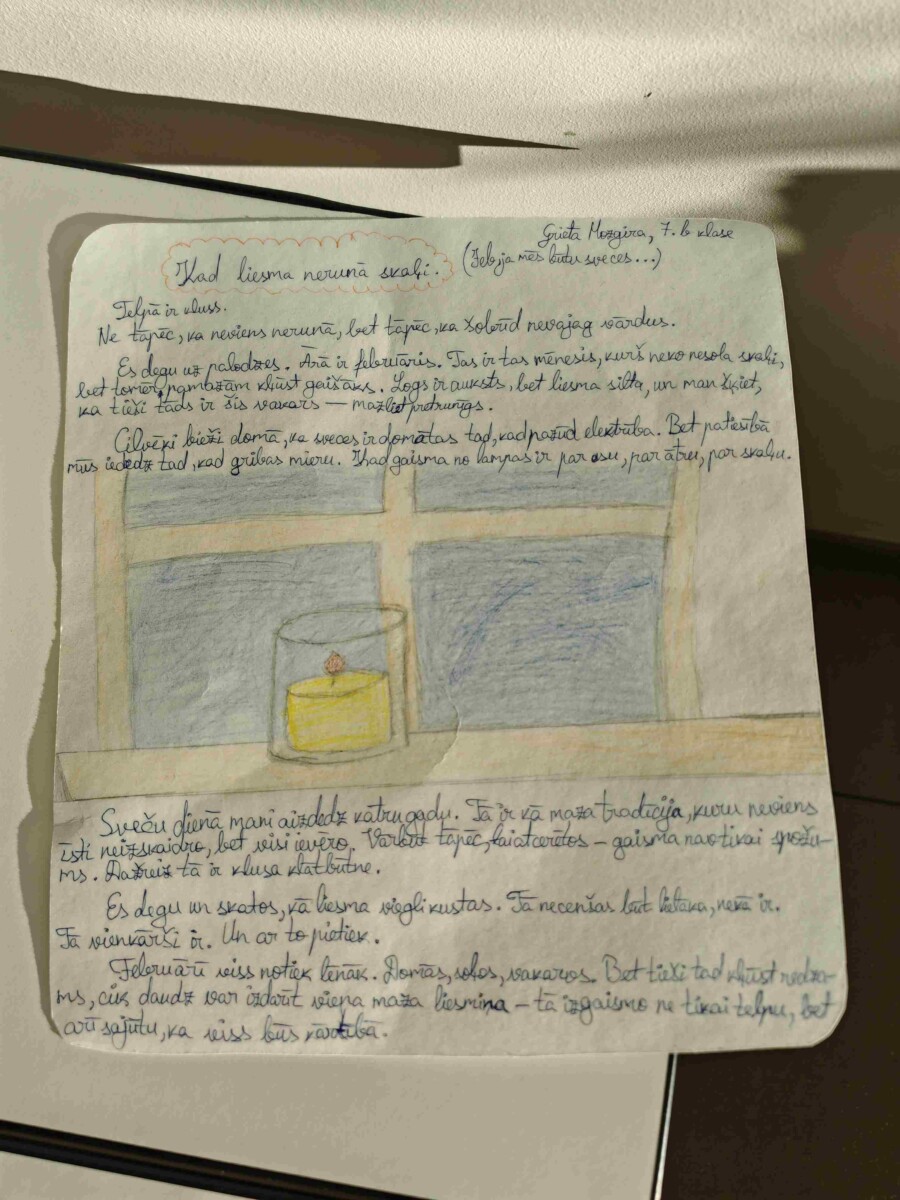 Grieta Mozgira, 7. b klase
Kad liesma nerunā skaļi. (Jeb ja mēs būtu sveces...)
Telpā ir kluss.
Ne tāpēc, ka neviens nerunā, bet tāpēc, ka šobrīd nevajag vārdus.
Es degu uz palodzes. Ārā ir februāris. Tas ir tas mēnesis, kurš neko nesola skaļi,
bet tomēr, pamazām kļūst gaišāks. Logs ir auksts, bet liesma silta, un man šķiet,
ka tieši tāds ir šis vakars — mazliet pretrunīgs.
Cilvēki bieži domā, ka sveces ir domātas tad, kad pazūd elektrība. Bet patiesībā
mūs iededz tad, kad gribas mieru. Kad gaisma no lampas ir par asu, par ātru, par skaļu.
Sveču dienā mani aizdedz katru gadu. Tā ir kā maza tradīcija, kuru neviens
īsti neizskaidro, bet visi ievēro. Varbūt tāpēc, lai atcerētos – gaisma nav tikai spožu-
ms. Dažreiz tā ir klusa klātbūtne.
Es degu un skatos, kā liesma viegli kustas. Tā necenšas būt lielāka, nekā ir.
Tā vienkārši ir. Un ar to pietiek.
Februārī viss notiek lēnāk. Domās, soļos, vakaros. Bet tieši tad kļūst redza-
ms, cik daudz var izdarīt viena maza liesmiņa – tā izgaismo ne tikai telpu, bet
arī sajūtu, ka viss būs kārtībā.